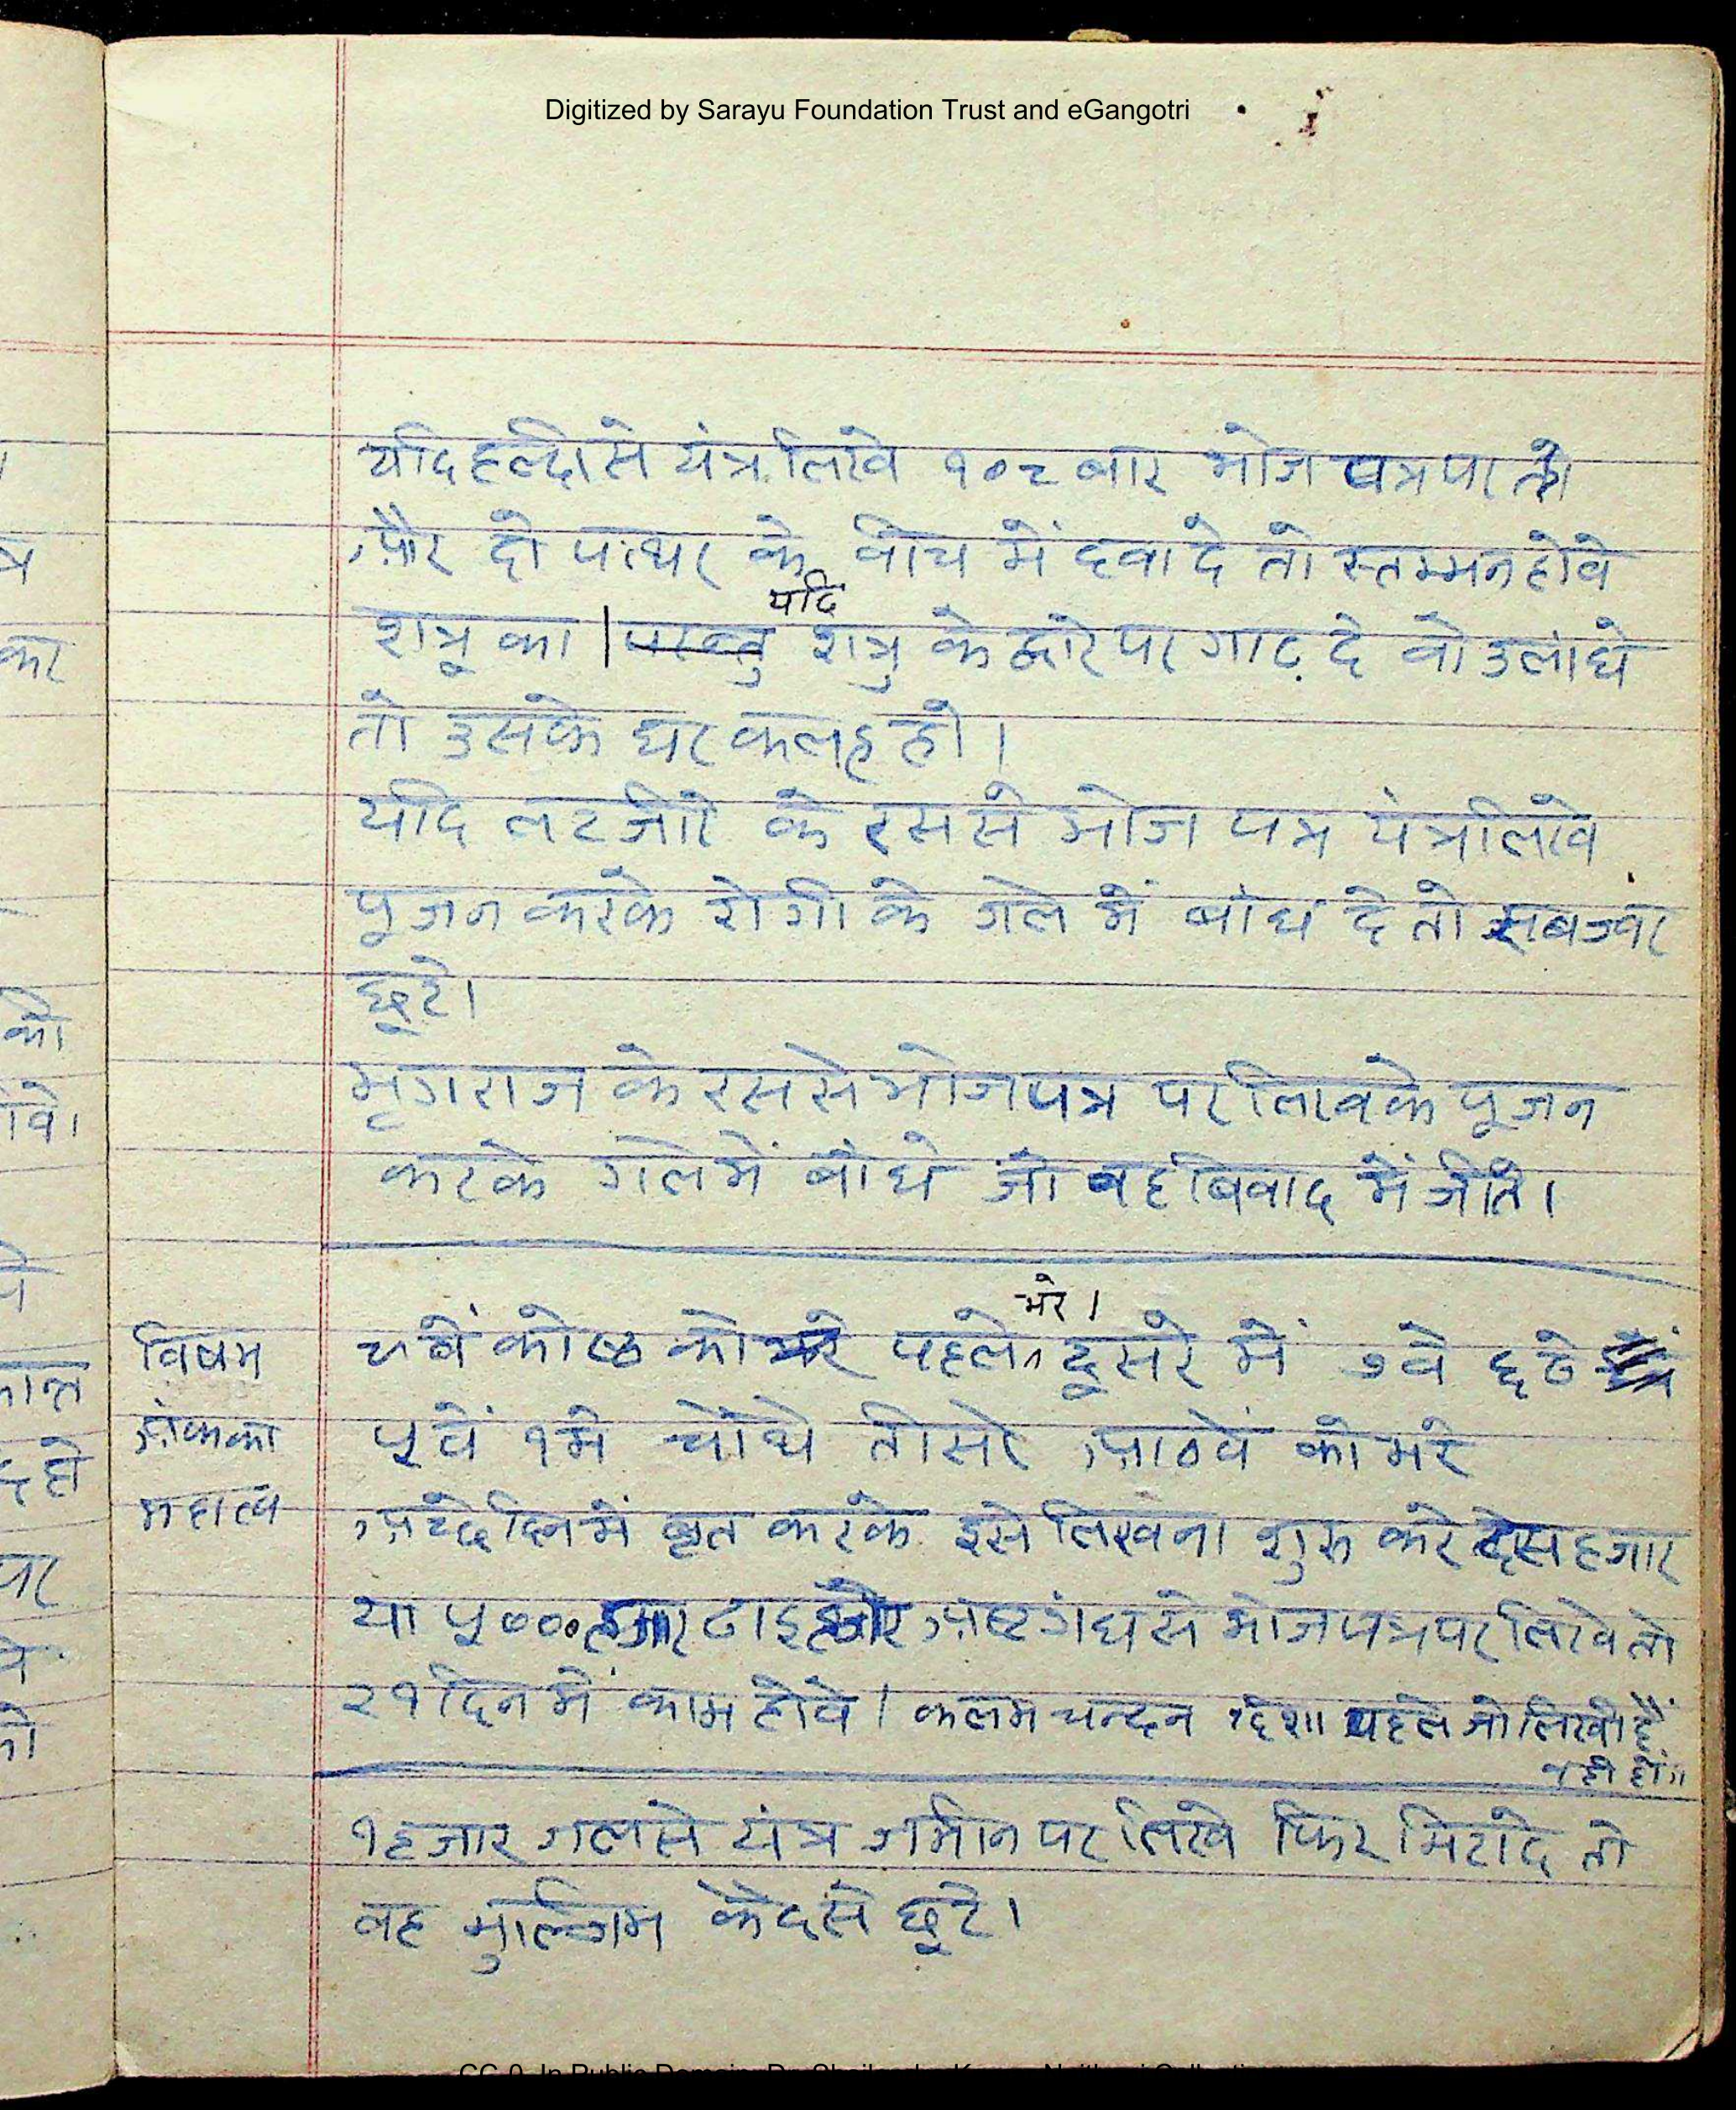 Digitized by Sarayu Foundation Trust and eGangotri
यदि हल्दी से यंत्र लिखे १०८ बार भोज पत्र पर तो
और दो पत्थर के बीच में दबा दे तो स्तम्भन होवे
यदि
शत्रू का | परन्तु शत्रु के द्वारे पर गाढ़ दे वो उलांघे
तो उसके घर कलह हो।
यदि लटजीरे के रस से भोज पत्र यंत्र लिखे
पूजन करके रोगी के गले में बांध दे तो सब ज्वर
छूटे।
भृगराज के रस से भोजपत्र पर लिखके पूजन
करके गले में बांधे जो वह बिवाद में जीते।
भरे।
विषम
अंकका
महात्व
९वें कोष्ठ को भरे पहले दूसरे में ७वे छठे
५वें १मे चौथे तीसरे आठवें को भरे
अच्छे दिन में व्रत करके इसे लिखना शुरू करे दस हजार
या ५००० हजार ढाइ हजार अष्टगंध से भोजपत्र पर लिखे तो
२१ दिन में काम होवे। कलम चन्दन दिशा पहले जो लिखी हैं
वही हों॥
१ हजार गलसे यंत्र जमीन पर लिखे फिर मिटादे तो
वह मुल्जिम कैद से छूटे।